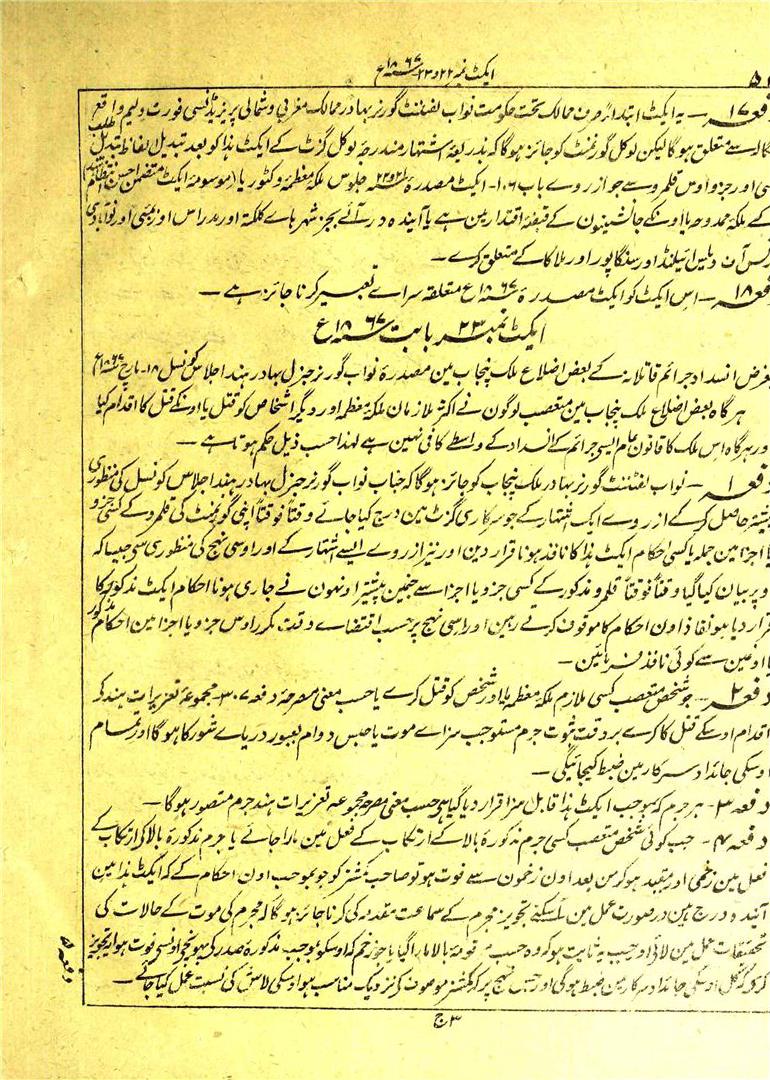 ایکٹ نمبر ۲۲ و ۲۳ سنہ ۱۸۶۷ع
دفعہ ۱۷ — یہ ایکٹ ابتداءً صرف ممالک تحت حکومت نواب لفٹننٹ گورنر بہادر ممالک مغربی و شمالی پریزیڈنسی فورٹ ولیم واقع
بنگالہ سے متعلق ہوگا لیکن لوکل گورنمنٹ کو جائز ہوگا کہ بذریعہ اشتہار مندرجہ لوکل گزٹ کے ایکٹ ہذا کو بعد تبدیل الفاظ تبدیل طلب
کسی اور جزو اوس قلمرو سے جو از روے باب ۱۰۶ - ایکٹ مصدرہ ۲۱ و ۲۲ جلوس ملکۂ معظمہ وکٹوریا (موسومۂ ایکٹ متضمن احسن انتظام ہند)
کے ملکۂ ممدوحہ یا اونکے جانشینون کے قبضۂ اقتدار مین ہے یا آیندہ در آئے بجز شہر ہاے کلکتہ اور مدراس اور بمبئی اور نوآبادی
پرنس آف ویلس آئیلنڈ اور سنگاپور اور ملاکا کے متعلق کرے —
دفعہ ۱۸ — اس ایکٹ کو ایکٹ مصدرۂ سنہ ۱۸۶۷ع متعلقہ سراے تعبیر کرنا جائز ہے —
ایکٹ نمبر ۲۳ بابت سنہ ۱۸۶۷ع
بغرض انسداد جرائم قاتلانہ کے بعض اضلاع ملک پنجاب مین مصدرۂ نواب گورنر جنرل بہادر ہند اجلاس کونسل ۱۸ - مارچ سنہ ۱۸۶۷ع
ہر گاہ بعض اضلاع ملک پنجاب مین متعصب لوگون نے اکثر ملازمان ملکۂ معظمہ اور دیگر اشخاص کو قتل یا اونکے قتل کا اقدام کیا
اور ہرگاہ اس ملک کا قانون عام ایسی جرائم کے انسداد کے واسطے کافی نہین ہے لہذا حسب ذیل حکم ہوتا ہے —
دفعہ ۱ — نواب لفٹننٹ گورنر بہادر ملک پنجاب کو جائز ہوگا کہ جناب نواب گورنر جنرل بہادر ہند اجلاس کونسل کی منظوری
پیشتر حاصل کر کے از روے ایک اشتہار کے جو سرکاری گزٹ مین درج کیا جائے وقتاً فوقتاً اپنی گورنمنٹ کی قلمرو کے کسی جزو
یا اجزا مین جملہ یا کسی احکام ایکٹ ہذا کا نافذ ہونا قرار دین اور نیز از روے ایسے اشتہار کے اور اوسی نہج کی منظوری سے جیسا کہ
اوپر بیان کیا گیا وقتاً فوقتاً قلمرو مذکور کے کسی جزو یا اجزا سے جنمین پیشتر اونہون نے جاری ہونا احکام ایکٹ مذکور کا
قرار دیا ہو نفاذ اون احکام کا موقوف کرتے رہین اور اسی نہج پر حسب اقتضاے وقت مکرر اوس جزو یا اجزا مین احکام مذکور
یا اونمین سے کوئی نافذ فرمائین —
دفعہ ۲ — جو شخص متعصب کسی ملازم ملکۂ معظمہ یا اور شخص کو قتل کرے یا حسب معنی مصرحۂ دفعہ ۳۰۷ - مجموعۂ تعزیرات ہند کے
اقدام اوسکے قتل کا کرے بروقت ثبوت جرم مستوجب سزاے موت یا حبس دوام بعبور دریاے شور کا ہوگا اور تمام
اوسکی جائداد سرکار مین ضبط کیجائیگی —
دفعہ ۳ - ہر جرم کہ بموجب ایکٹ ہذا قابل سزا قرار دیا گیا ہے حسب معنی مصرحہ مجموعہ تعزیرات ہند جرم متصور ہوگا —
دفعہ ۴ - جب کوئی شخص متعصب کسی جرم مذکورۂ بالا کے ارتکاب کے فعل مین مارا جائے یا جرم مذکورۂ بالا کی ارتکاب کے
فعل مین زخمی اور مقید ہو کر من بعد اون زخمون سے فوت ہو تو صاحب کمشنر کو جو بموجب اون احکام کے کہ ایکٹ ہذا مین
آیندہ درج ہین در صورت عمل مین آسکنے تجویز مجرم کے سماعت مقدمہ کی کرنا جائز ہوگا کہ مجرم کی موت کے حالات کی
تحقیقات عمل مین لائی اور جب یہ ثابت ہو کہ وہ حسب مرقومۂ بالا مارا گیا یا جو زخم کہ اوسکو بموجب مذکورۂ صدر کی پہونچے اونسی فوت ہوا یہ تجویز
کری کہ کل اوسکی جائداد سرکار مین ضبط ہوگی اور جس نہج پر کہ کمشنر موصوف کے نزدیک مناسب ہو اوسکی لاش کی نسبت عمل کیا جائے —
دفعہ ۵
۳ ج